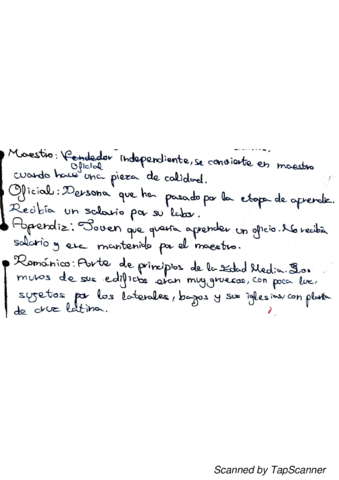 Maestro: Vendedor independiente, se convierte en maestro
Oficial
cuando hace una pieza de calidad.
Oficial: Persona que ha pasado por la etapa de aprendiz.
Recibía un salario por su labor.
Aprendiz: Joven que quería aprender un oficio. No recibía
salario y era mantenido por el maestro.
Románico: Arte de principios de la Edad Media. Los
muros de sus edificios eran muy gruesos, con poca luz,
sujetos por los laterales, bajos y sus iglesias con planta
de cruz latina.
Scanned by TapScanner